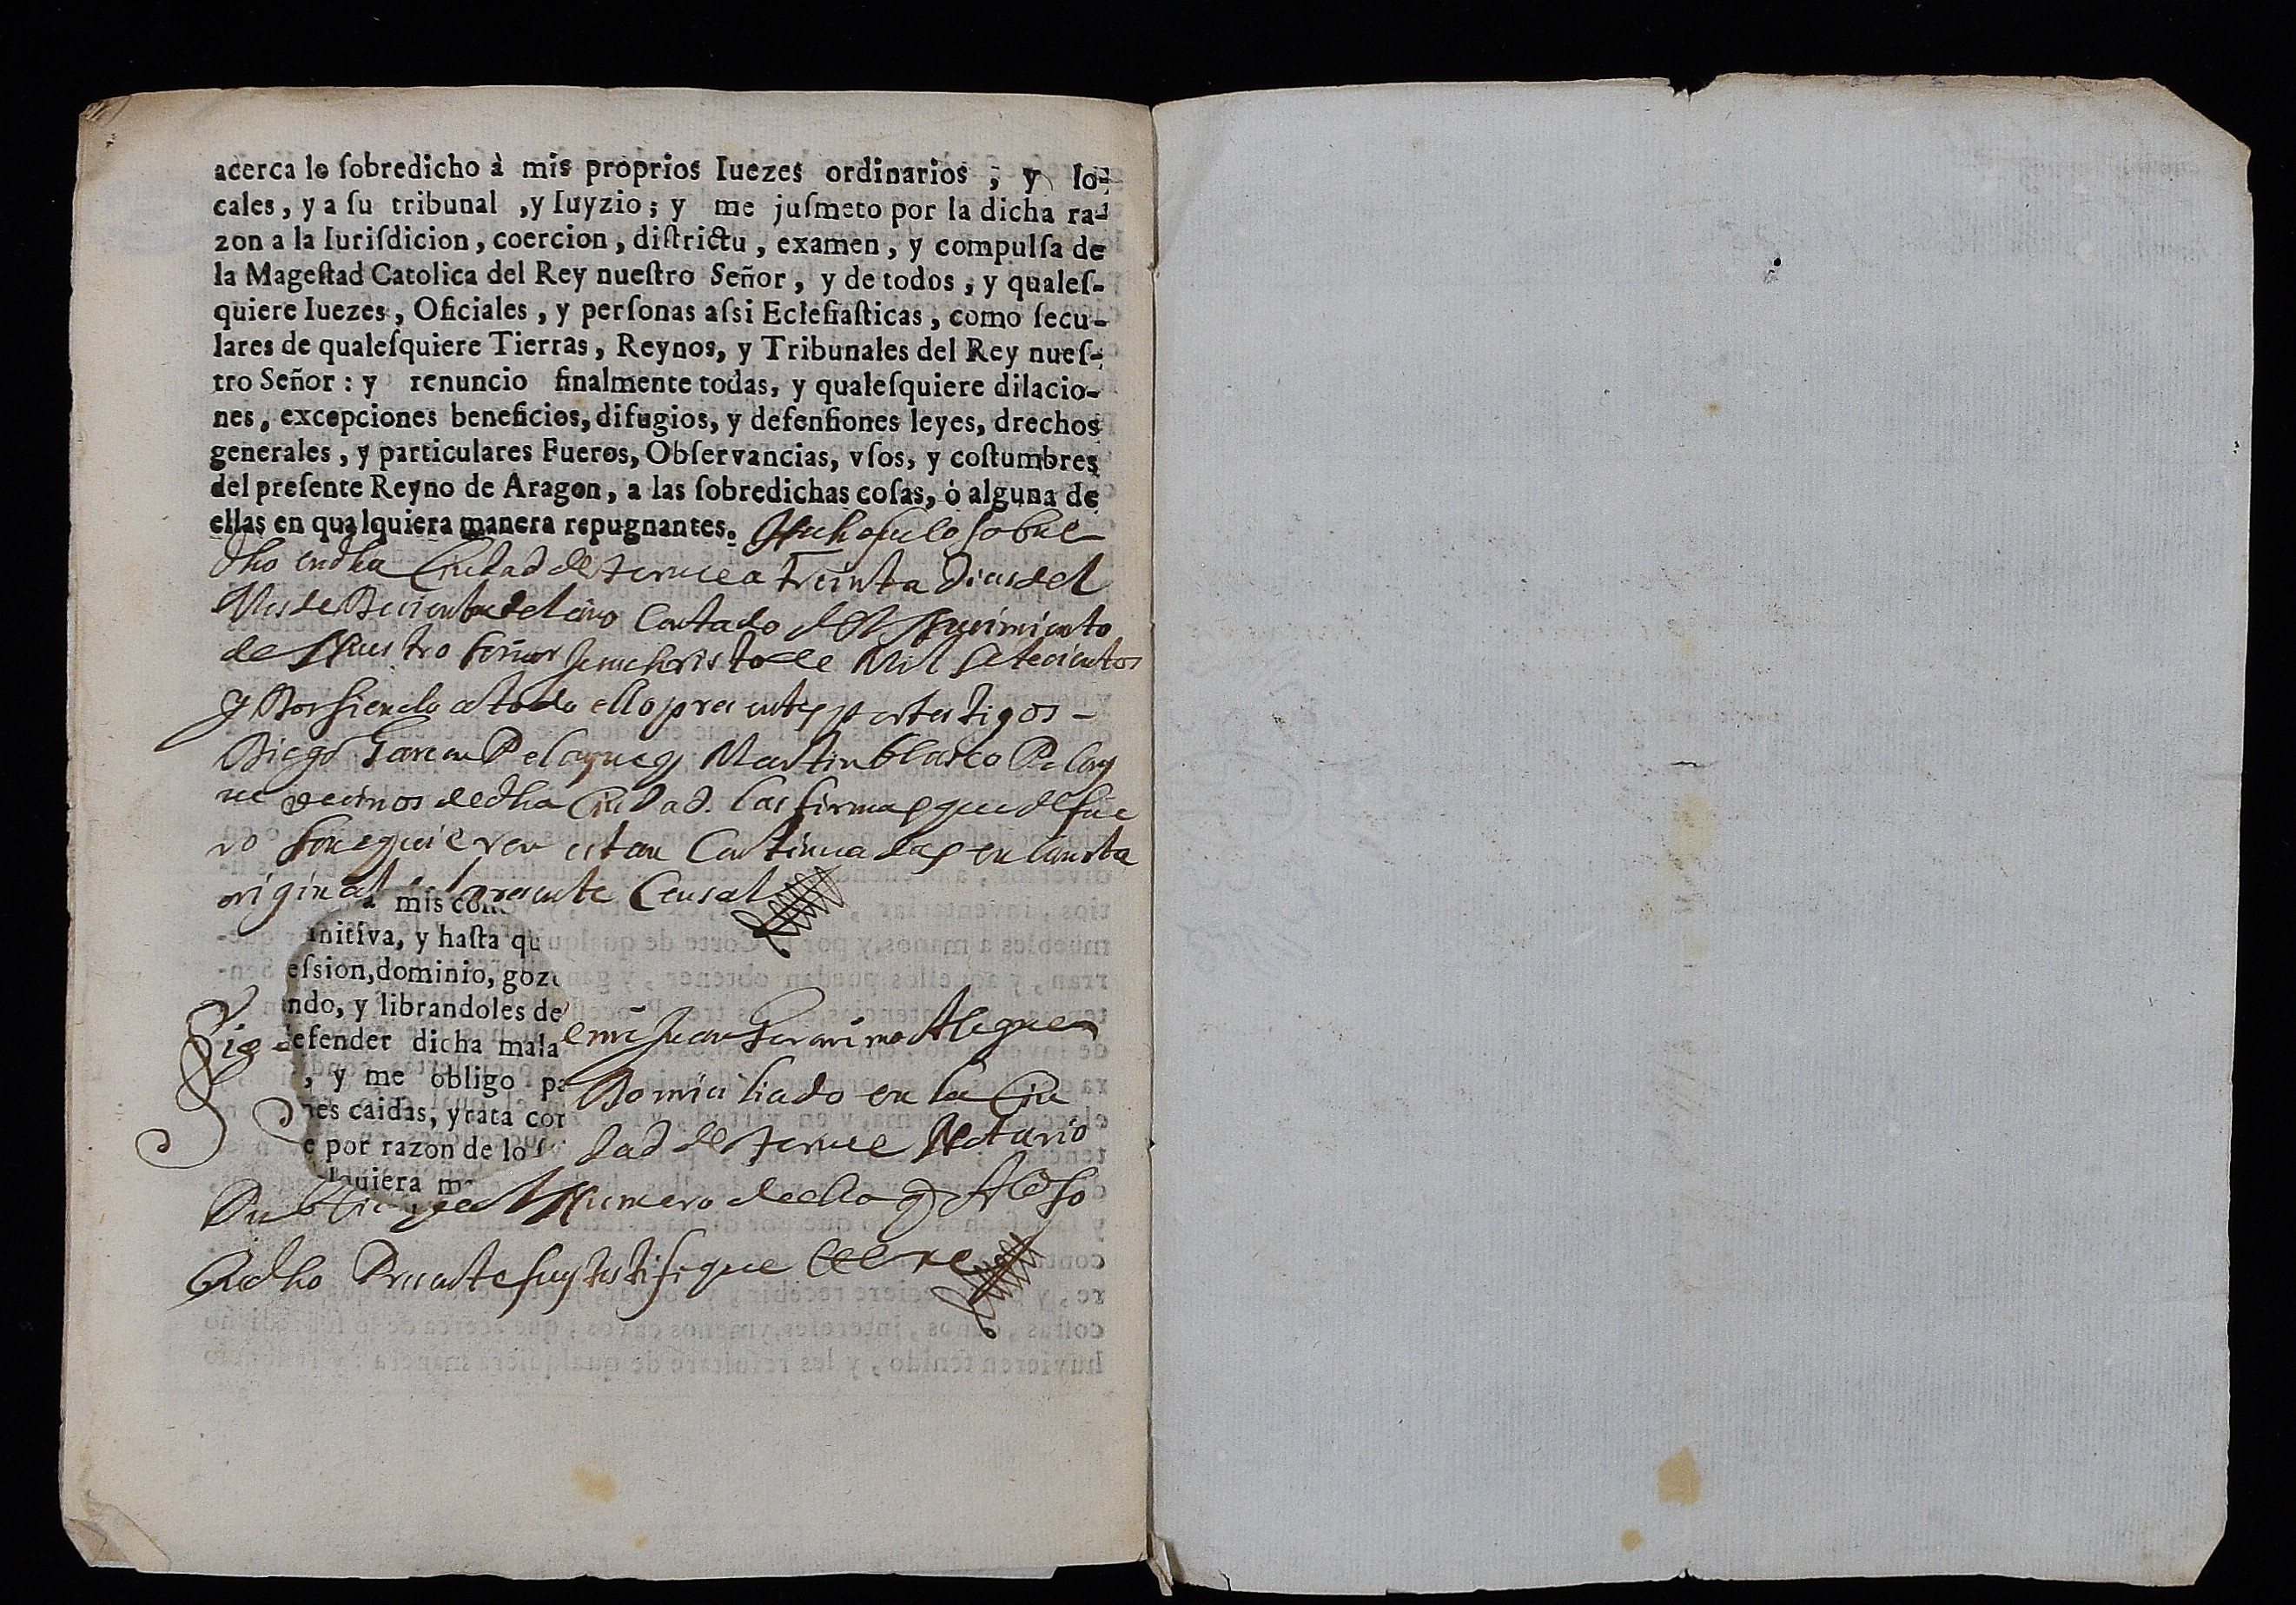 acerca lo ſobredicho à mis proprios Iuezes ordinarios, y lo-
cales, y a ſu tribunal, y Iuyzio; y me juſmeto por la dicha ra-
zon a la Iuriſdicion, coercion, diſtrictu, examen, y compulſa de
la Mageſtad Catolica del Rey nueſtro Señor, y de todos, y qualeſ-
quiere Iuezes, Oficiales, y perſonas aſsi Ecleſiaſticas, como ſecu-
lares de qualeſquiere Tierras, Reynos, y Tribunales del Rey nueſ-
tro Señor: y renuncio finalmente todas, y qualeſquiere dilacio-
nes, excepciones beneficios, difugios, y defenſiones leyes, drechos
generales, y particulares Fueros, Obſervancias, vſos, y coſtumbres
del preſente Reyno de Aragon, a las ſobredichas coſas, ò alguna de
ellas en qualquiera manera repugnantes. Hecho fue lo sobre
dho en dha Ciudad de Teruel a Treinta Dias del
Mes de Deciembre del año Contado del Nacimiento
de Nuestro Señor Jesuchristo de Mil Setecientos
y Dos siendo a todo ello presentes por testigos
Diego Garcia Pelayre y Martin blasco Pelay
re vecinos de dha Ciudad. las firmas que de fue
ro se requieren estan Continuadas en la nota
original presente Censal
mis con
initiva, y haſta qu
eſsion, dominio, goz
ndo, y librandoles de
Sig de mi Juan Geronimo Alegre
efender dicha mala
, y me obligo pa Domiciliado en la Ciu
nes caidas, y rata con
e por razon de lo dad de Teruel Notario
lquiera m
Publico del Numero de ella y A lo so
bredho Presente fuy testifique Cerre